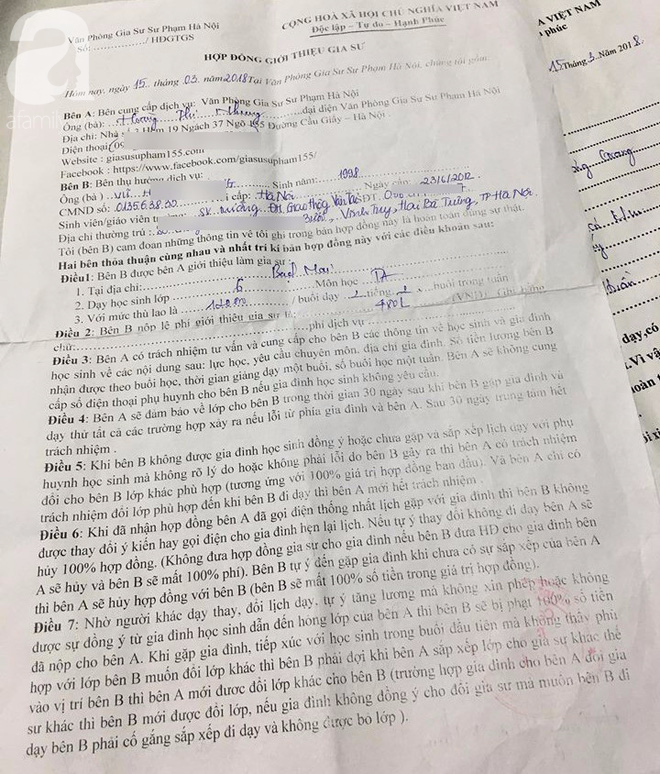 Văn Phòng Gia Sư Sư Phạm Hà Nội
Số:............/ HĐGTGS
CỘNG HOÀ XÃ HỘI CHỦ NGHĨA VIỆT NAM
Độc lập – Tự do – Hạnh Phúc
HỢP ĐỒNG GIỚI THIỆU GIA SƯ
Hôm nay, ngày 15 tháng 03 năm 2018 Tại Văn Phòng Gia Sư Sư Phạm Hà Nội, chúng tôi gồm:
Bên A: Bên cung cấp dịch vụ: Văn Phòng Gia Sư Sư Phạm Hà Nội
Ông (bà): Hoàng Thị đại diện Văn Phòng Gia Sư Sư Phạm Hà Nội
Địa chỉ: Nhà Hẻm 19 Ngách 37 Ngõ Đường Cầu Giấy – Hà Nội
Điện thoại:(09
Website : giasusupham155.com
Facebook : https://www.facebook.com/giasusupham155/
Bên B: Bên thụ hưởng dịch vụ:
Ông (bà) : Sinh năm: 1998
CMND số: cấp: Hà Nội Ngày cấp 23/6/2012
Sinh viên/giáo viên SV trường ĐH Giao thông Vận tải ĐT.
Địa chỉ thường trú : Vĩnh Tuy, Hai Bà Trưng, TP Hà Nội
Tôi (bên B) cam đoan những thông tin về tôi ghi trong bản hợp đồng này là hoàn toàn đúng sự thật.
Hai bên thỏa thuận cùng nhau và nhất trí kí bản hợp đồng này với các điều khoản sau:
Điều1: Bên B được bên A giới thiệu làm gia sư
1. Tại địa chỉ: Bạch Mai
2. Dạy học sinh lớp 6 Môn học TA
3. Với mức thù lao là / buổi dạy 2 tiếng, 2 buổi trong tuần
Điều 2: Bên B nộp lệ phí giới thiệu gia sư là 480k (VNĐ). Ghi bằng
chữ: phí dịch vụ
Điều 3: Bên A có trách nhiệm tư vấn và cung cấp cho bên B các thông tin về học sinh và gia đình
học sinh về các nội dung sau: lực học, yêu cầu chuyên môn, địa chỉ gia đình. Số tiền lương bên B
nhận được theo buổi học, thời gian giảng dạy một buổi, số buổi học một tuần. Bên A sẽ không cung
cấp số điện thoại phụ huynh cho bên B nếu gia đình học sinh không yêu cầu.
Điều 4: Bên A sẽ đảm bảo về lớp cho bên B trong thời gian 30 ngày sau khi bên B gặp gia đình và
dạy thử tất cả các trường hợp xảy ra nếu lỗi từ phía gia đình và bên A. Sau 30 ngày trung tâm hết
trách nhiệm .
Điều 5: Khi bên B không được gia đình học sinh đồng ý hoặc chưa gặp và sắp xếp lịch dạy với phụ
huynh học sinh mà không rõ lý do hoặc không phải lỗi do bên B gây ra thì bên A có trách nhiệm
đổi cho bên B lớp khác phù hợp (tương ứng với 100% giá trị hợp đồng ban đầu). Và bên A chỉ có
trách nhiệm đổi lớp phù hợp đến khi bên B đi dạy thì bên A mới hết trách nhiệm .
Điều 6: Khi đã nhận hợp đồng bên A đã gọi điện thống nhất lịch gặp với gia đình thì bên B không
được thay đổi ý kiến hay gọi điện cho gia đình hẹn lại lịch. Nếu tự ý thay đổi không đi dạy bên A sẽ
hủy 100% hợp đồng. (Không đưa hợp đồng gia sư cho gia đình nếu bên B đưa HĐ cho gia đình bên
A sẽ hủy và bên B sẽ mất 100% phí). Bên B tự ý đến gặp gia đình khi chưa có sự sắp xếp của bên A
thì bên A sẽ hủy hợp đồng với bên B (bên B sẽ mất 100% số tiền trong giá trị hợp đồng).
Điều 7: Nhờ người khác dạy thay, đổi lịch dạy, tự ý tăng lương mà không xin phép hoặc không
được sự đồng ý từ gia đình học sinh dẫn đến hỏng lớp của bên A thì bên B sẽ bị phạt 100% số tiền
đã nộp cho bên A. Khi gặp gia đình, tiếp xúc với học sinh trong buổi đầu tiên mà không thấy phù
hợp với lớp bên B muốn đổi lớp khác thì bên B phải đợi khi bên A sắp xếp lớp cho gia sư khác thế
vào vị trí bên B thì bên A mới được đổi lớp khác cho bên B (trường hợp gia đình cho bên A đổi gia
sư khác thì bên B mới được đổi lớp, nếu gia đình không đồng ý cho đổi gia sư mà muốn bên B đi
dạy bên B phải cố gắng sắp xếp đi dạy và không được bỏ lớp ).
A VIỆT NAM
phúc
15 Tháng 3 Năm 2018
dạy,có